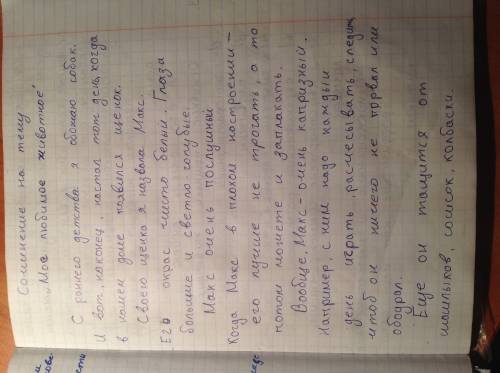 Сочинение на тему
"Мое любимое животное"
С раннего детства я обожаю собак.
И вот, наконец, настал тот день, когда
в нашем доме появился щенок.
Своего щенка я назвала Макс.
Его окрас чисто белый. Глаза
большие и светло голубые.
Макс очень послушный
Когда Макс в плохом настроении -
его лучше не трогать, а то
потом можете и заплакать.
Вообще, Макс - очень капризный.
Например, с ним надо каждый
день играть, расчесывать, следить
чтоб он ничего не порвал или
ободрал.
Еще он тащится от
шашлыков, сосисок, колбаски.